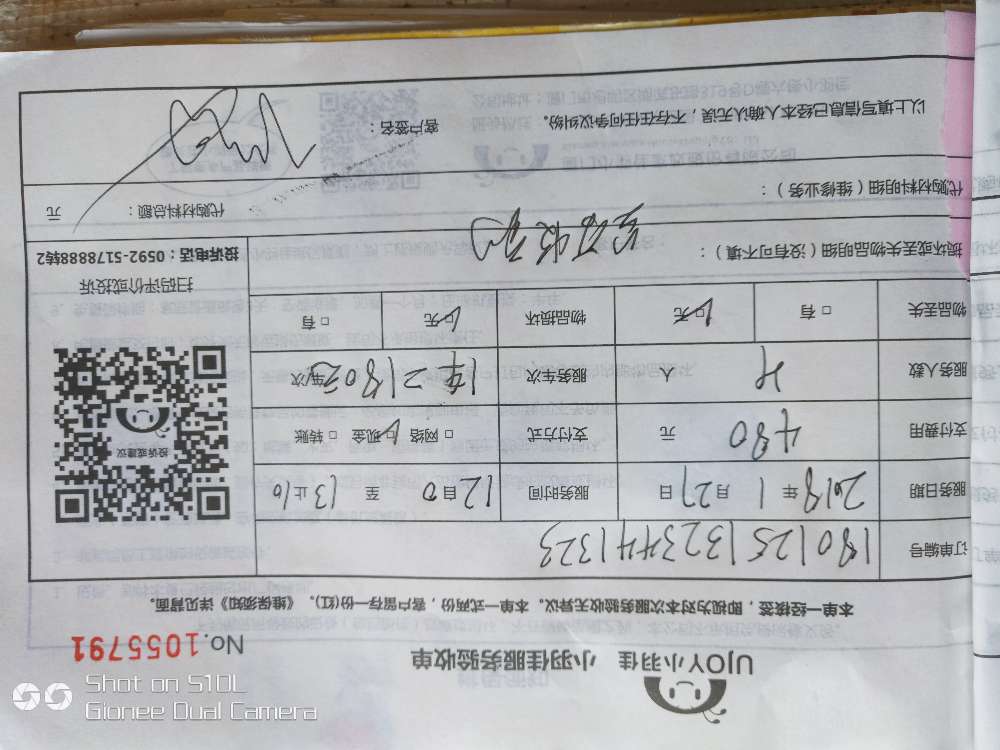 UJOY小羽佳 小羽佳服务验收单
No.1055791
本单一经接签，即视为对本次服务验收无异议。本单一式两份，客户留存一份(红)。《维保须知》详见背面。
订单编号 1801251323441323
服务日期 2018年1月27日 服务时间 12 0 自 至 13 止10
支付费用 480 元 支付方式 □网络 □现金 □转账
服务人数 4 人 服务车次 1车2180元 车次
物品丢失 □有 □无 物品损坏 □无 □有
投诉或建议
扫码评价或投诉
投诉电话：0592-5178888转2
损坏或丢失物品明细（没有可不填）：
代购材料明细（维修业务）：
代购材料总额： 元
以上填写信息已经本人确认无误，不存在任何争议纠纷。 客户签名：
Shot on S10L
Gionee Dual Camera